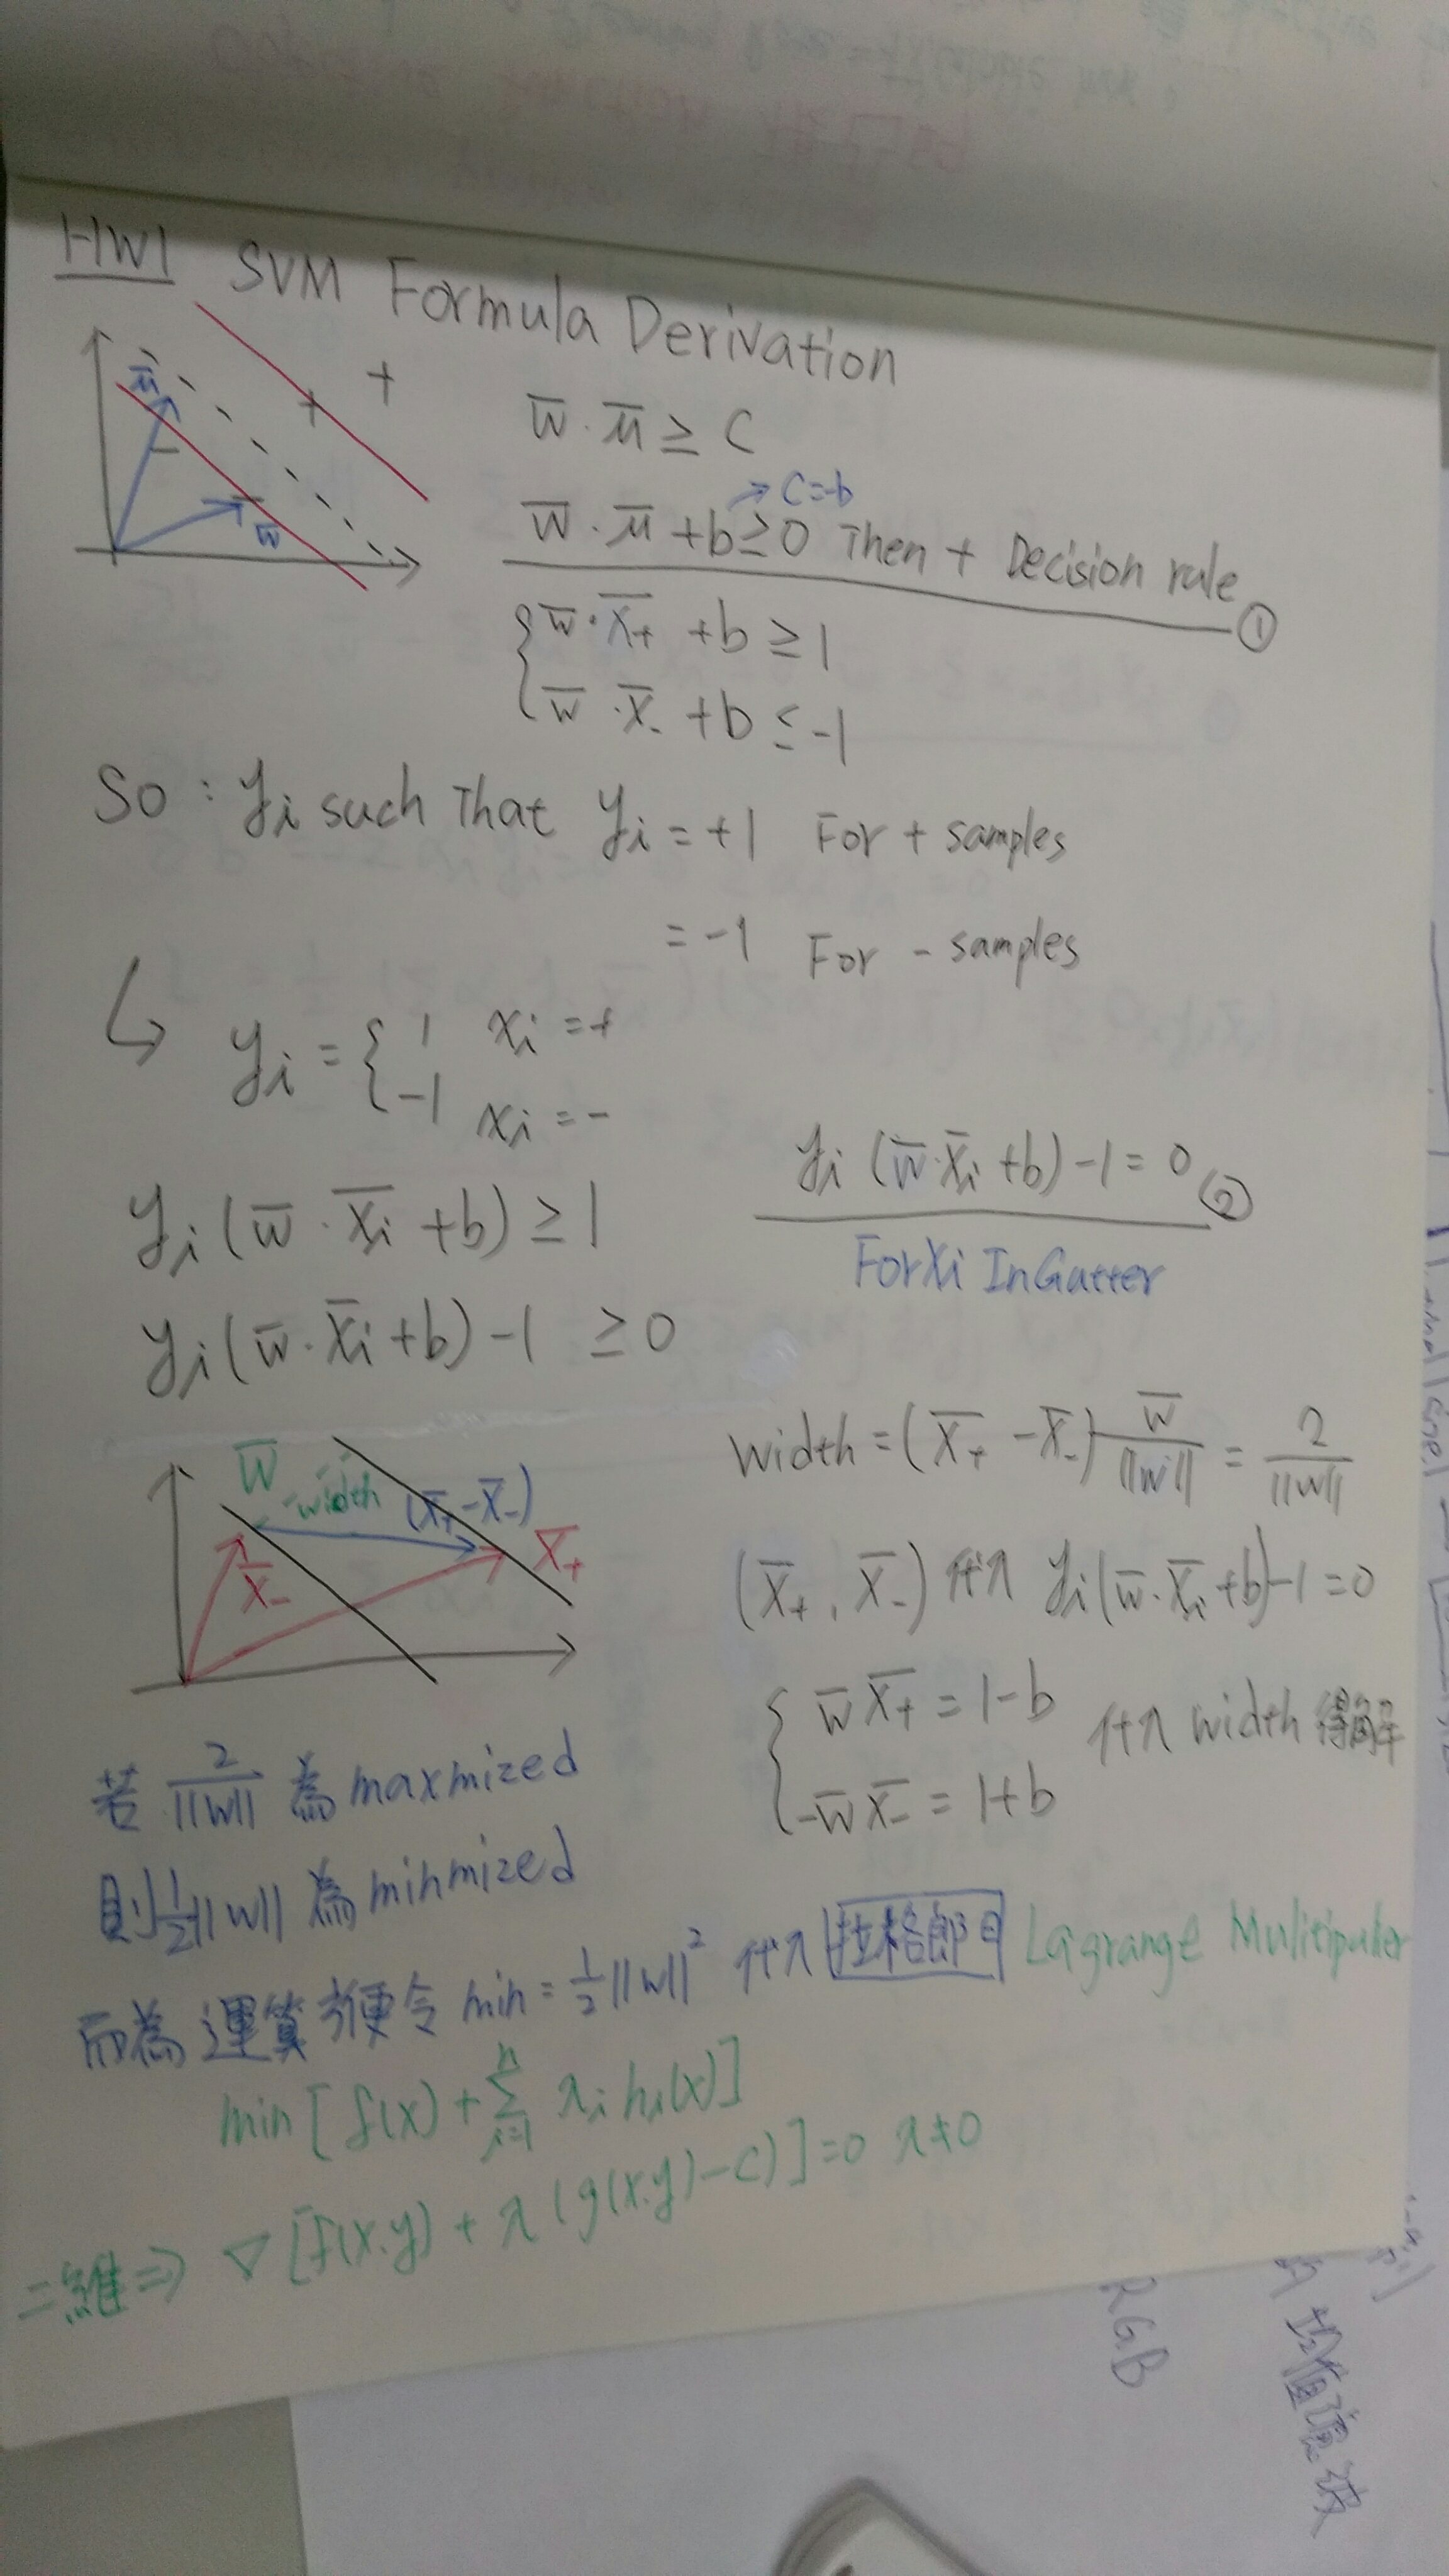 HW1 SVM Formula Derivation
ū
w̄
+ +
w̄ · ū ≥ C
→ C=-b
w̄ · ū + b ≥ 0 Then + Decision rule ①
{ w̄ · x̄₊ + b ≥ 1
w̄ · x̄₋ + b ≤ -1
So : yi such That yi = +1 For + samples
= -1 For - samples
↳ yi = { 1 xi = +
-1 xi = -
yi (w̄ · x̄i + b) ≥ 1
yi (w̄ · x̄i + b) - 1 = 0 ②
For xi In Gutter
yi (w̄ · x̄i + b) - 1 ≥ 0
w̄ width (x̄₊ - x̄₋)
x̄₋ x̄₊
width = (x̄₊ - x̄₋) w̄/||w|| = 2/||w||
(x̄₊, x̄₋) 代入 yi (w̄ · x̄i + b) - 1 = 0
{ w̄ x̄₊ = 1 - b
-w̄ x̄₋ = 1 + b
代入 width 得解
若 2/||w|| 為 maxmized
則 1/2 ||w|| 為 minmized
而為運算方便令 min = 1/2 ||w||² 代入 拉格郎日 Lagrange Mulitipuler
min [ f(x) + Σ i=1 n λi hi(x) ]
二維 ⇒ ∇ [ f(x.y) + λ (g(x.y) - c) ] = 0 λ ≠ 0
RGB
均值濾波